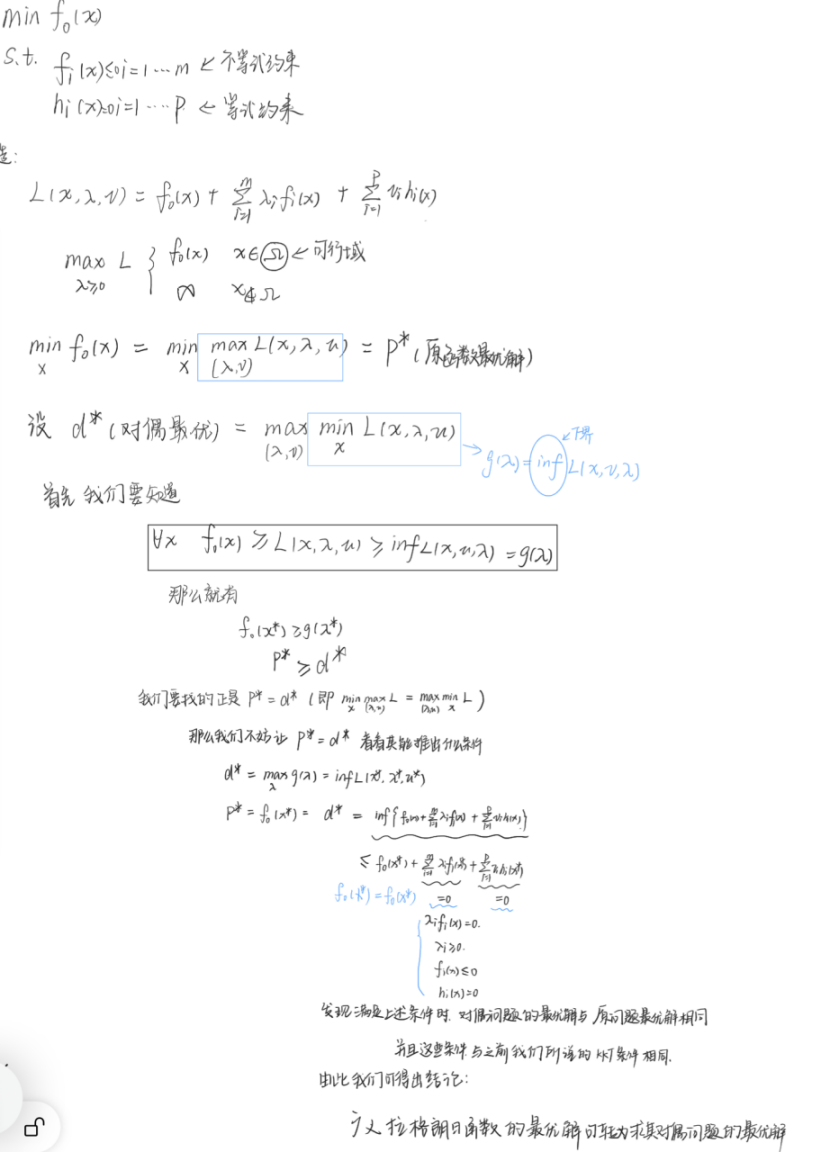 min f₀(x)
s.t. fᵢ(x)≤0 i=1…m ← 不等式约束
hᵢ(x)=0 i=1…P ← 等式约束
L(x,λ,ν) = f₀(x) + Σᵢ₌₁ᵐ λᵢfᵢ(x) + Σᵢ₌₁ᵖ νᵢhᵢ(x)
max L λ≥0 { f₀(x) x∈Ω ← 可行域
∞ x∉Ω
min f₀(x) x = min x max L(x,λ,u) (λ,ν) = P* (原函数最优解)
设 d* (对偶最优) = max (λ,ν) min L(x,λ,u) x → g(λ)= inf L(x,ν,λ) ← 下界
首先 我们要知道
∀x f₀(x) ≥ L(x,λ,u) ≥ inf L(x,u,λ) = g(λ)
那么就有
f₀(x*) ≥ g(λ*)
P* ≥ d*
我们要找的正是 P* = d* (即 min x max (λ,u) L = max (λ,u) min x L)
那么我们不妨让 P* = d* 看看其能推出什么条件
d* = max λ g(λ) = inf L(x*, λ*, u*)
P* = f₀(x*) = d* = inf{f₀(x)+Σᵢ₌₁ᵐ λᵢfᵢ(x) + Σᵢ₌₁ᵖ νᵢhᵢ(x)}
≤ f₀(x*) + Σᵢ₌₁ᵐ λᵢfᵢ(x*) + Σᵢ₌₁ᵖ νᵢhᵢ(x*)
f₀(x*) = f₀(x*) =0 =0
{ λᵢfᵢ(x)=0.
λᵢ≥0.
fᵢ(x)≤0
hᵢ(x)=0
发现满足上述条件时 对偶问题的最优解与 原问题最优解相同
并且这些条件 与之前我们所说的 KKT 条件相同.
由此我们可得出结论:
广义拉格朗日函数的最优解可转为求其对偶问题的最优解